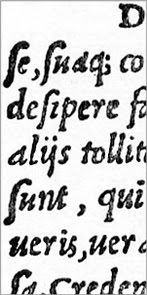 D
ſe, ſuaq; co
deſipere ſ
alijs tollit
ſunt, qui
ueris, uer
ſa Creden